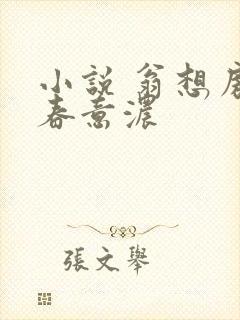 小說 翁想房
春意濃
張文舉